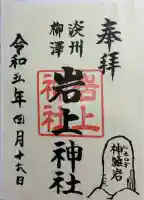 奉拝
淡州
柳澤
岩上神社
岩上
神社
令和五年四月十六日
神籬岩